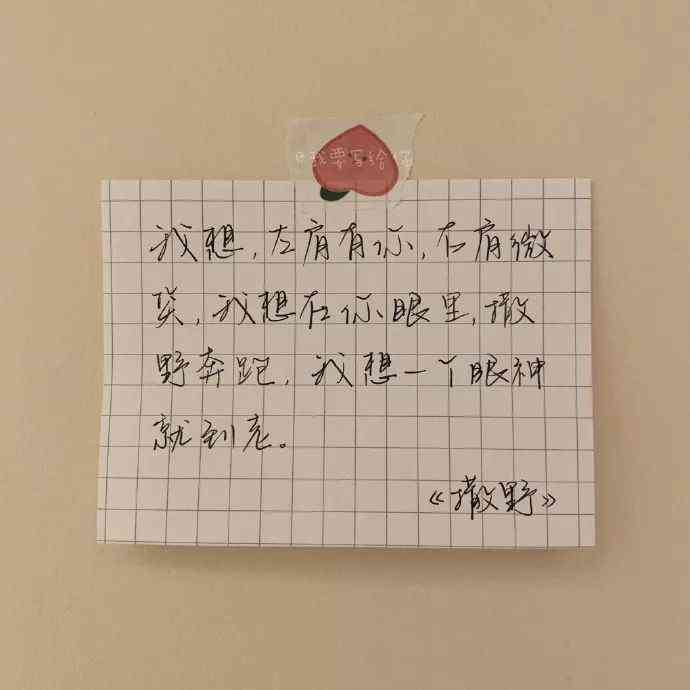 @我要写给你
我想,左肩有你,右肩微
笑,我想在你眼里,撒
野奔跑,我想一个眼神
就到老。
《撒野》